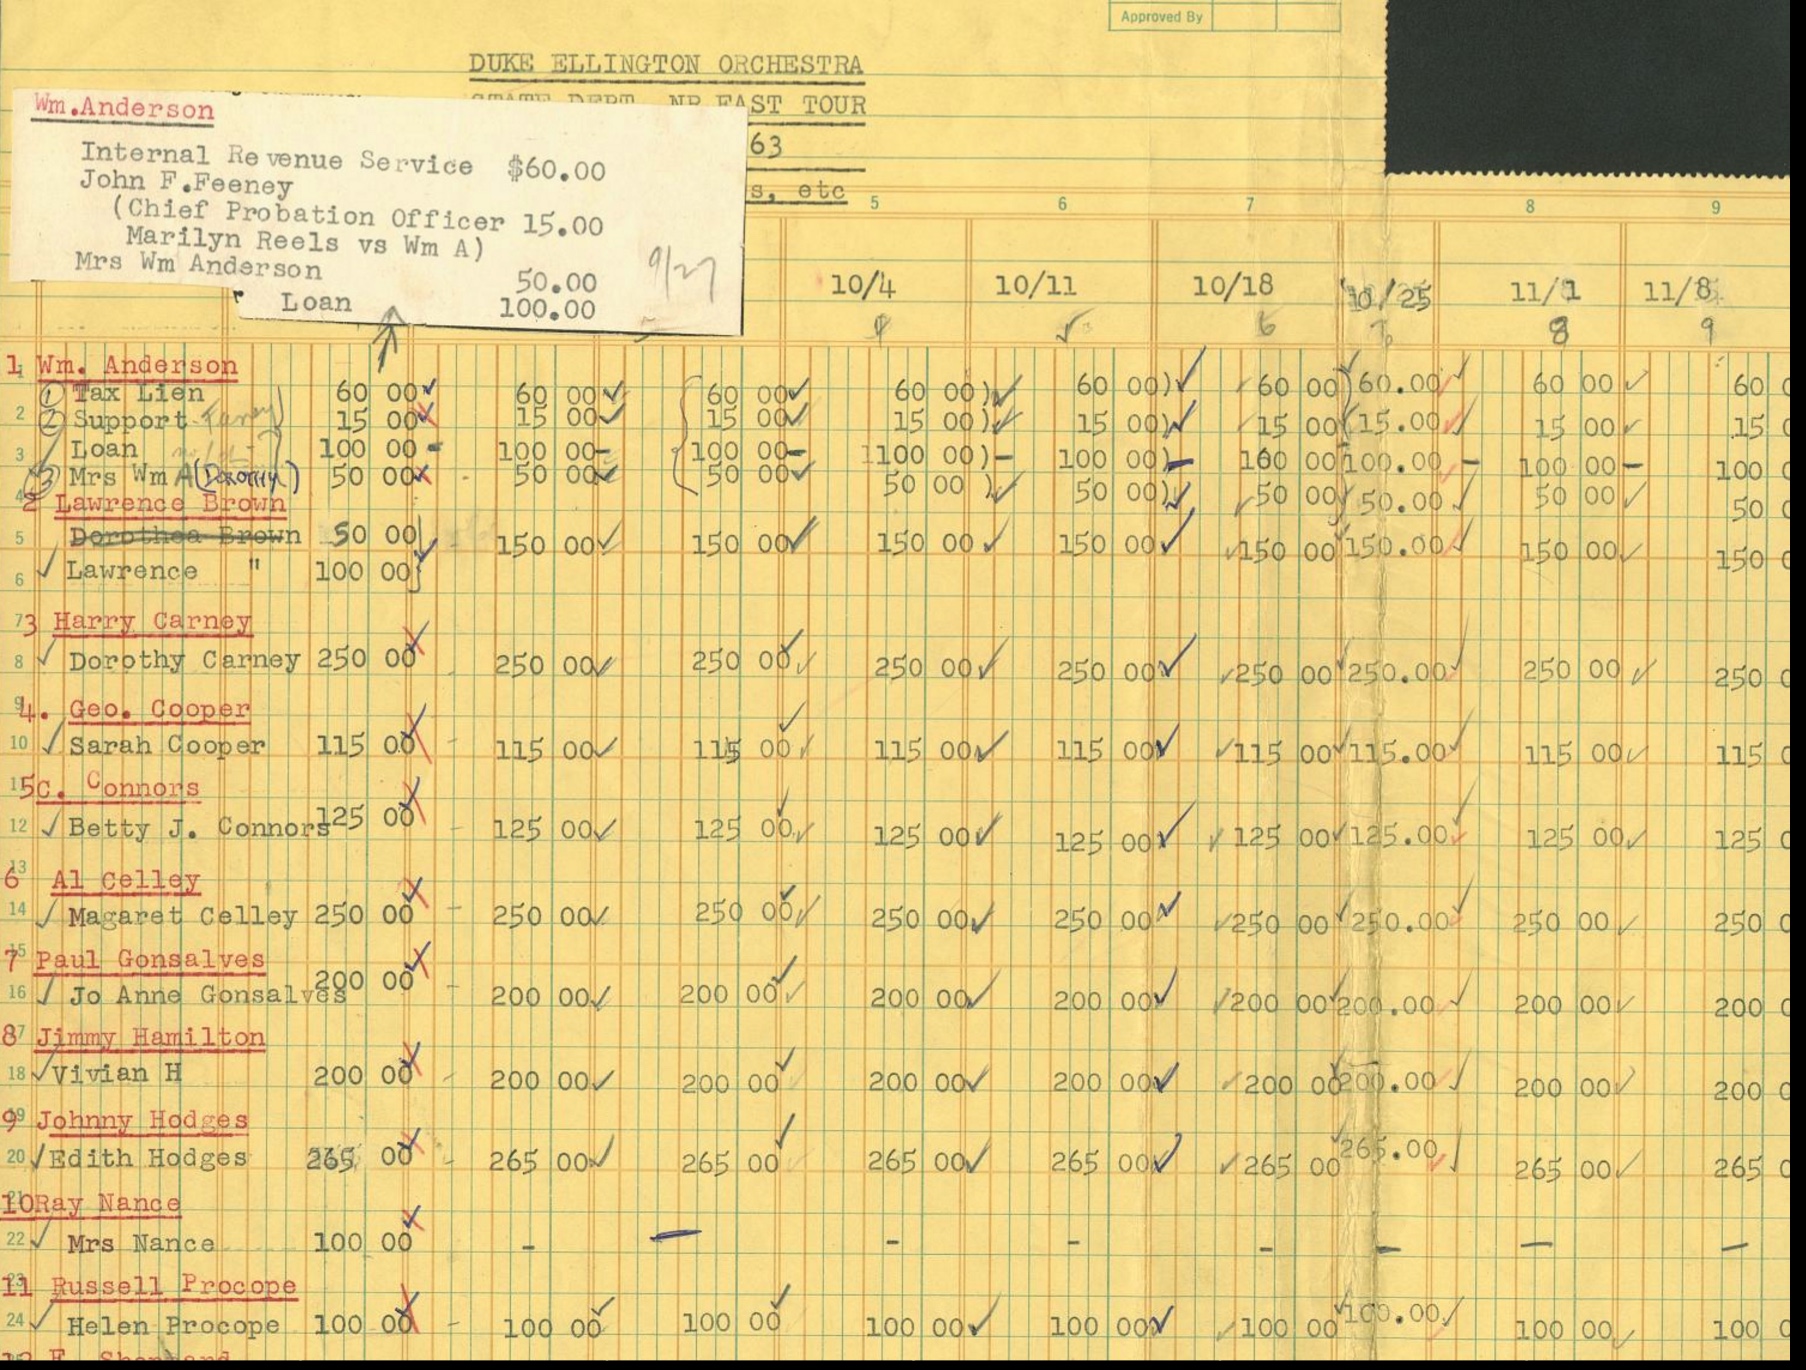 Approved By
DUKE ELLINGTON ORCHESTRA
STATE DEPT. NR EAST TOUR
63
s, etc
Wm.Anderson
Internal Revenue Service $60.00
John F.Feeney
(Chief Probation Officer 15.00
Marilyn Reels vs Wm A)
Mrs Wm Anderson 50.00
Loan 100.00
9/27
5 6 7 8 9
10/4 10/11 10/18 10/25 11/1 11/8
6 7 8 9
1 Wm. Anderson
1 Tax Lien 60 00 60 00 60 00 60 00) 60 00) 60 00) 60.00 60 00 60
2 2 Support Feeney 15 00 15 00 15 00 15 00) 15 00) 15 00 15.00 15 00 15
3 Loan 100 00 - 100 00- 100 00- 100 00)- 100 00)- 100 00 100.00 - 100 00- 100
3 Mrs Wm A(Dorothy) 50 00 50 00 50 00 50 00 ) 50 00) 50 00) 50.00 50 00 50
4 2 Lawrence Brown
5 Dorothea Brown 50 00 150 00 150 00 150 00 150 00 150 00 150.00 150 00 150
6 Lawrence " 100 00
7 3 Harry Carney
8 Dorothy Carney 250 00 - 250 00 250 00 250 00 250 00 250 00 250.00 250 00 250
9 4. Geo. Cooper
10 Sarah Cooper 115 00 - 115 00 115 00 115 00 115 00 115 00 115.00 115 00 115
11 5C. Connors
12 Betty J. Connors 125 00 - 125 00 125 00 125 00 125 00 125 00 125.00 125 00 125
13 6 Al Celley
14 Magaret Celley 250 00 - 250 00 250 00 250 00 250 00 250 00 250.00 250 00 250
15 7 Paul Gonsalves
16 Jo Anne Gonsalves 200 00 - 200 00 200 00 200 00 200 00 200 00 200.00 200 00 200
17 8 Jimmy Hamilton
18 Vivian H 200 00 - 200 00 200 00 200 00 200 00 200 00 200.00 200 00 200
19 9 Johnny Hodges
20 Edith Hodges 265 00 - 265 00 265 00 265 00 265 00 265 00 265.00 265 00 265
21 10Ray Nance
22 Mrs Nance 100 00 - - - - - - - -
23 11 Russell Procope
24 Helen Procope 100 00 - 100 00 100 00 100 00 100 00 100 00 100.00 100 00 100